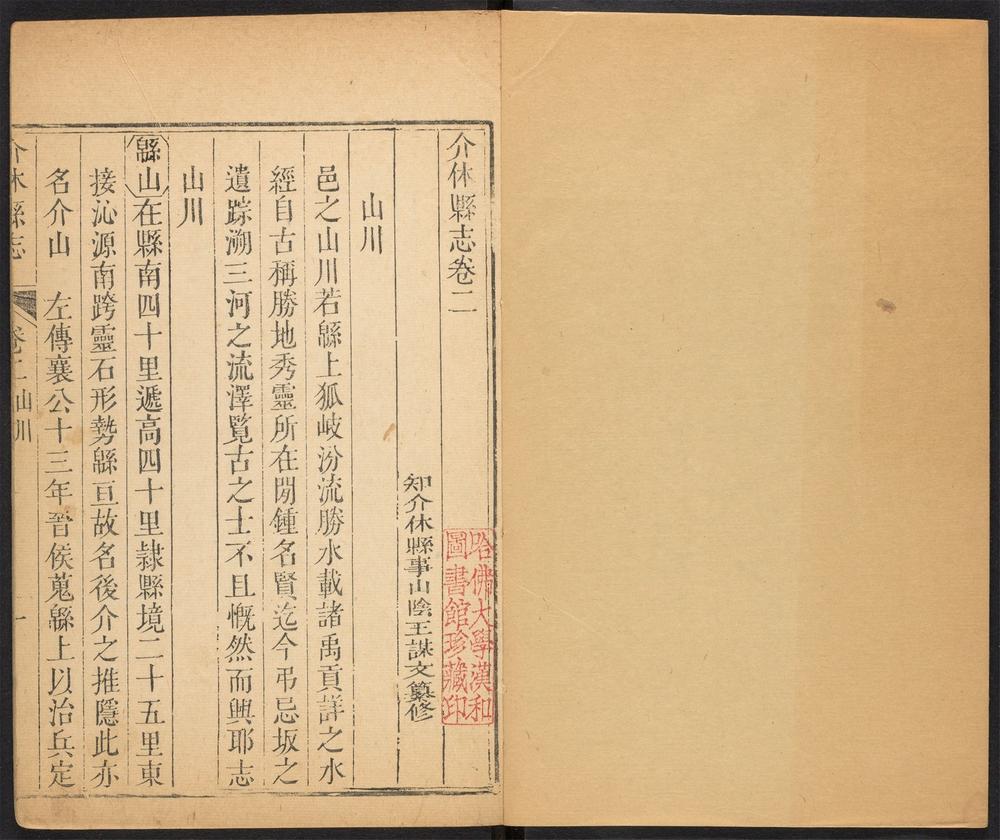 介休縣志卷二
哈佛大學漢和
圖書館珍藏印
知介休縣事山陰王謀文纂修
山川
邑之山川若緜上狐岐汾流勝水載諸禹貢詳之水
經自古稱勝地秀靈所在閒鍾名賢迄今弔忌坂之
遺踪溯三河之流澤覽古之士不且慨然而興耶志
山川
緜山在縣南四十里遞高四十里隷縣境二十五里東
接沁源南跨靈石形勢緜亘故名後介之推隱此亦
名介山 左傳襄公十三年晉侯蒐緜上以治兵定
介休縣志 卷二山川 一